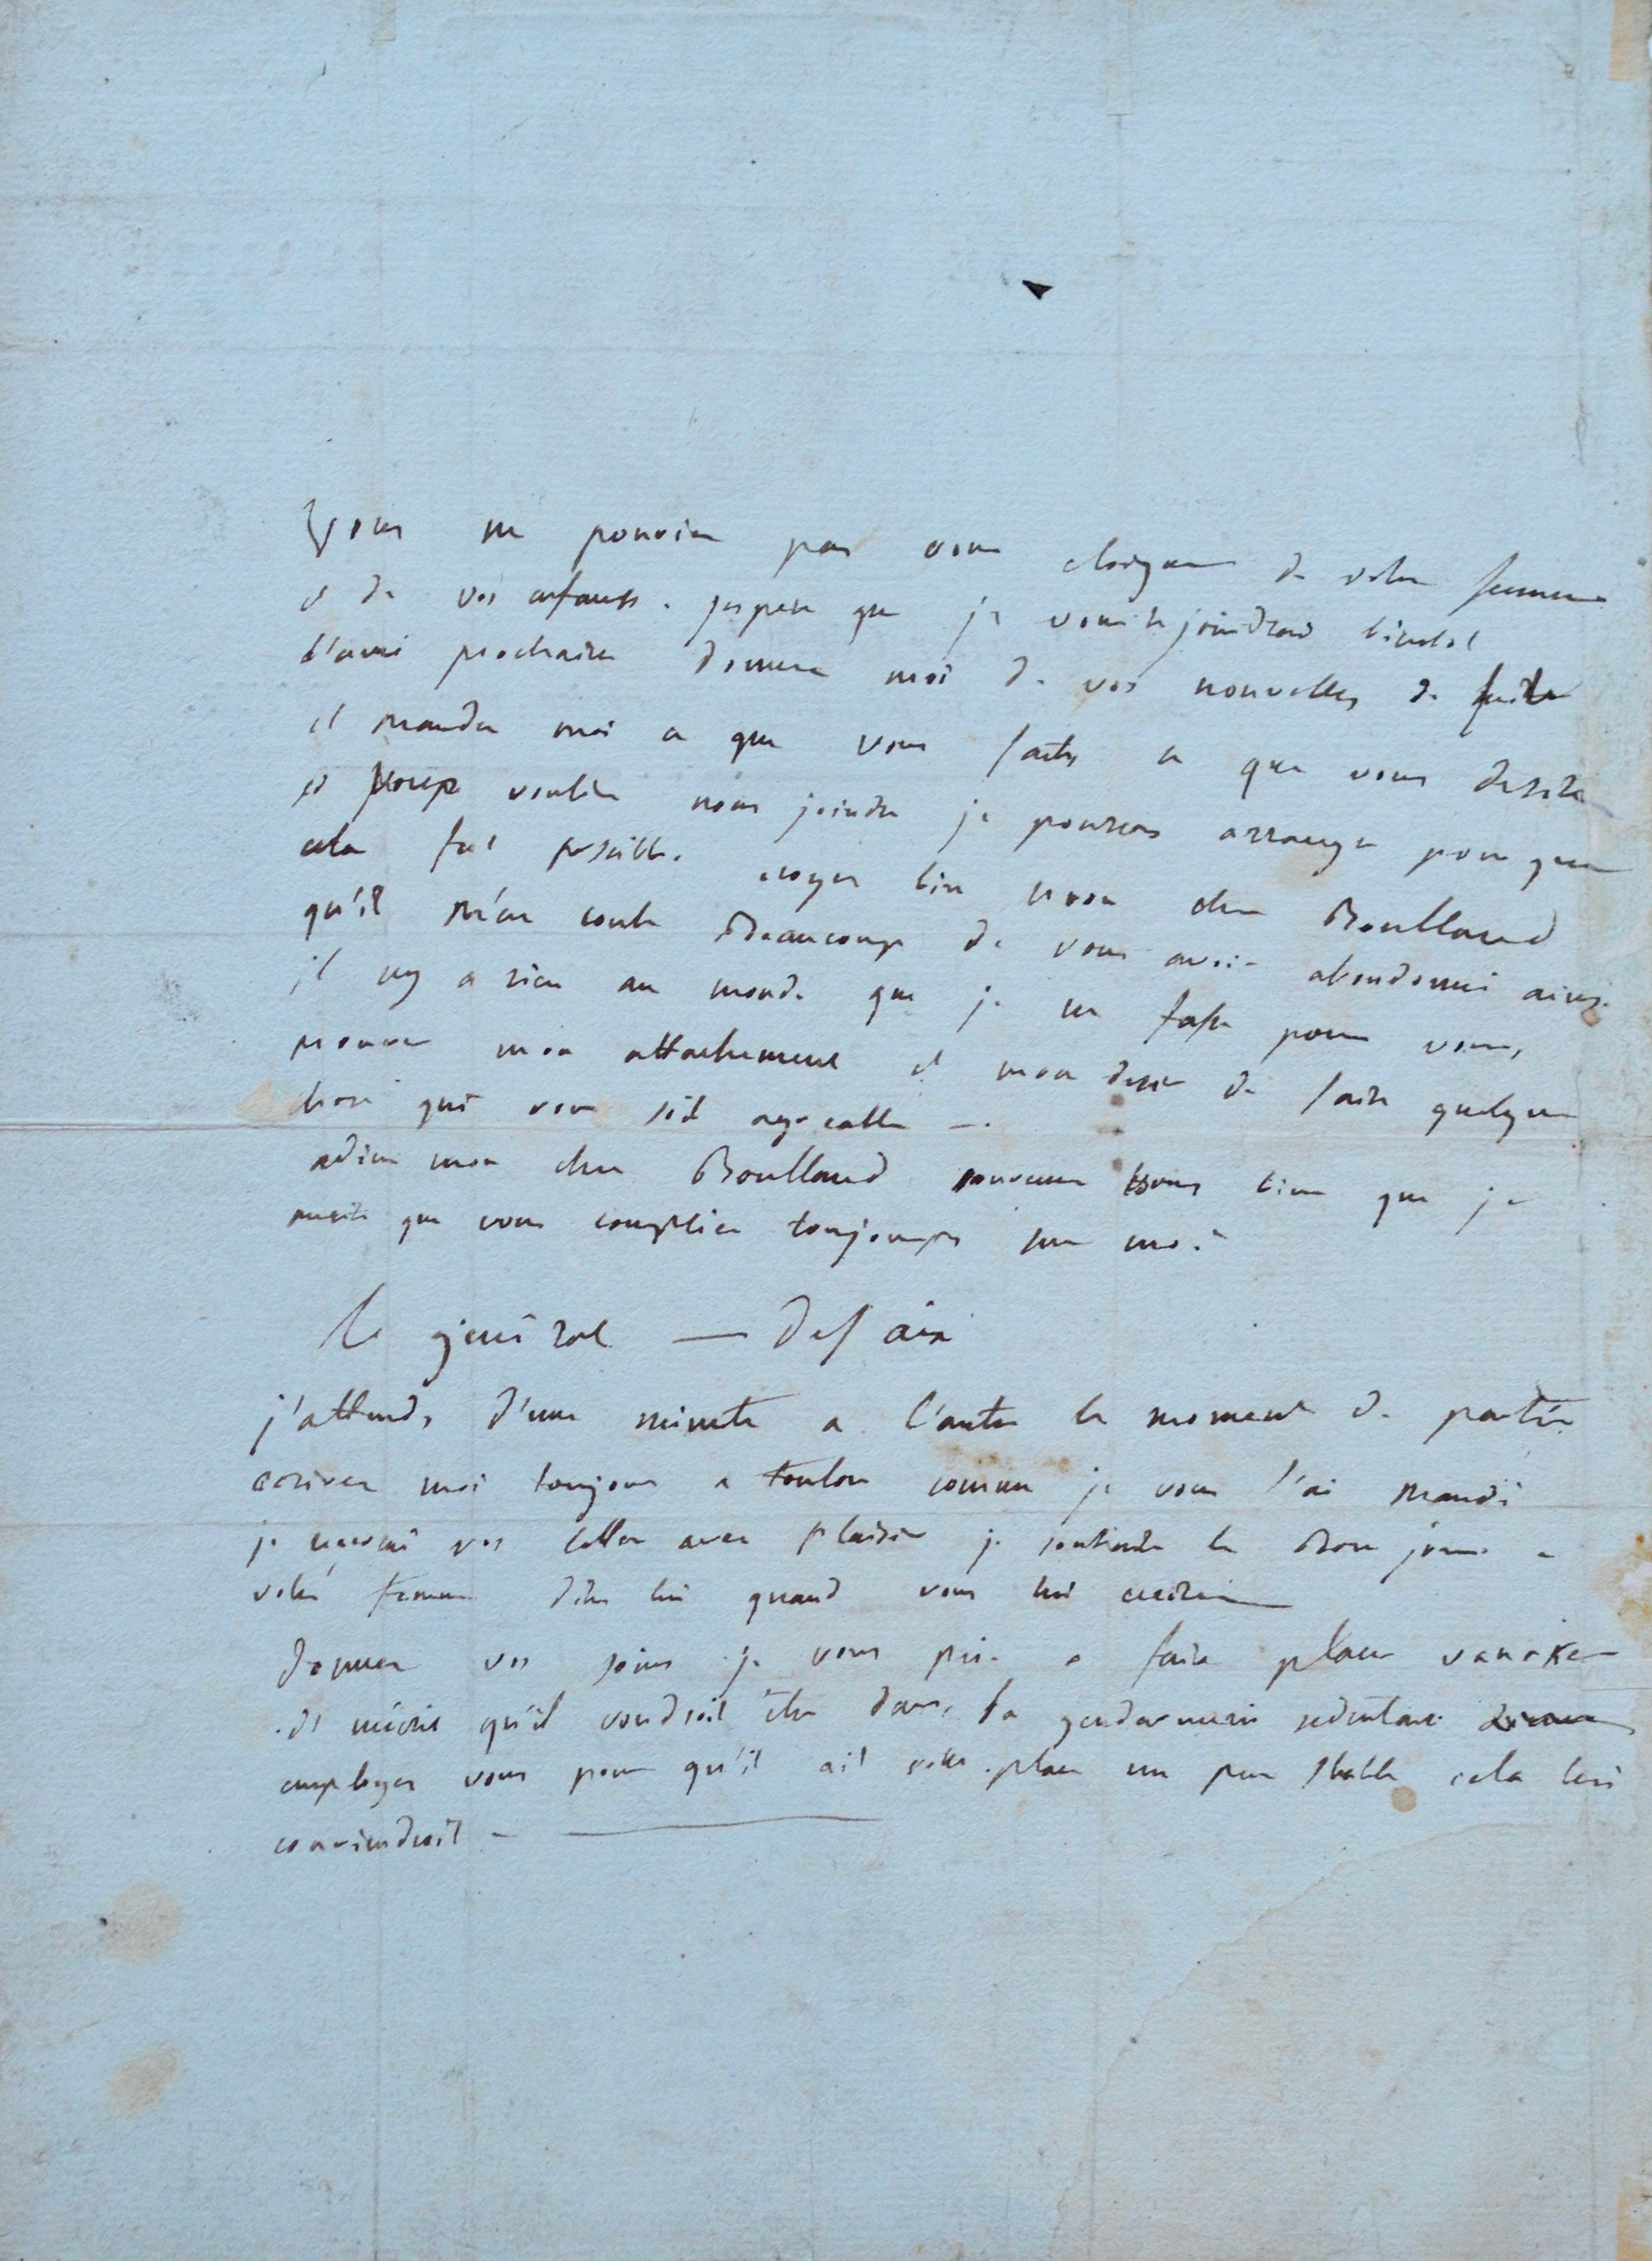 Vous ne pouvier pas vous eloigner de votre femme
et de vos enfants. jespere que je vous rejoindrai bientot
l'anné prochaine donnez moi de vos nouvelles de suite
et mander moi ce que vous faite ce que vous desirez
et vouliez nous joindre je pourrois arranger pour que
cela fut possible. croyez bien mon cher Boulland
qu'il m'en coute Beaucoup de vous avoir abandonné ainsi
il ny a rien au monde que je ne fasse pour vous,
prouver mon attachement et mon desir de faire quelque
chose qui vous soit agreable —.
adieu mon cher Boulland souvenez vous bien que je
merite que vous comptiez toujours sur moi
le général — Desaix
j'attends, d'une minute a l'autre le moment de partir
ecrivez moi toujours a toulon comme je vous l'ai mandé
je recevrai vos lettres avec plaisir je souhaite le Bon jour a
votre femme dites lui quand vous lui ecrirez
donnez vos soins je vous prie a faire placer
il mécrit qu'il voudroit être dans la gendarmerie sedentaire
employez vous pour qu'il ait cette place un peu stable cela lui
conviendroit —